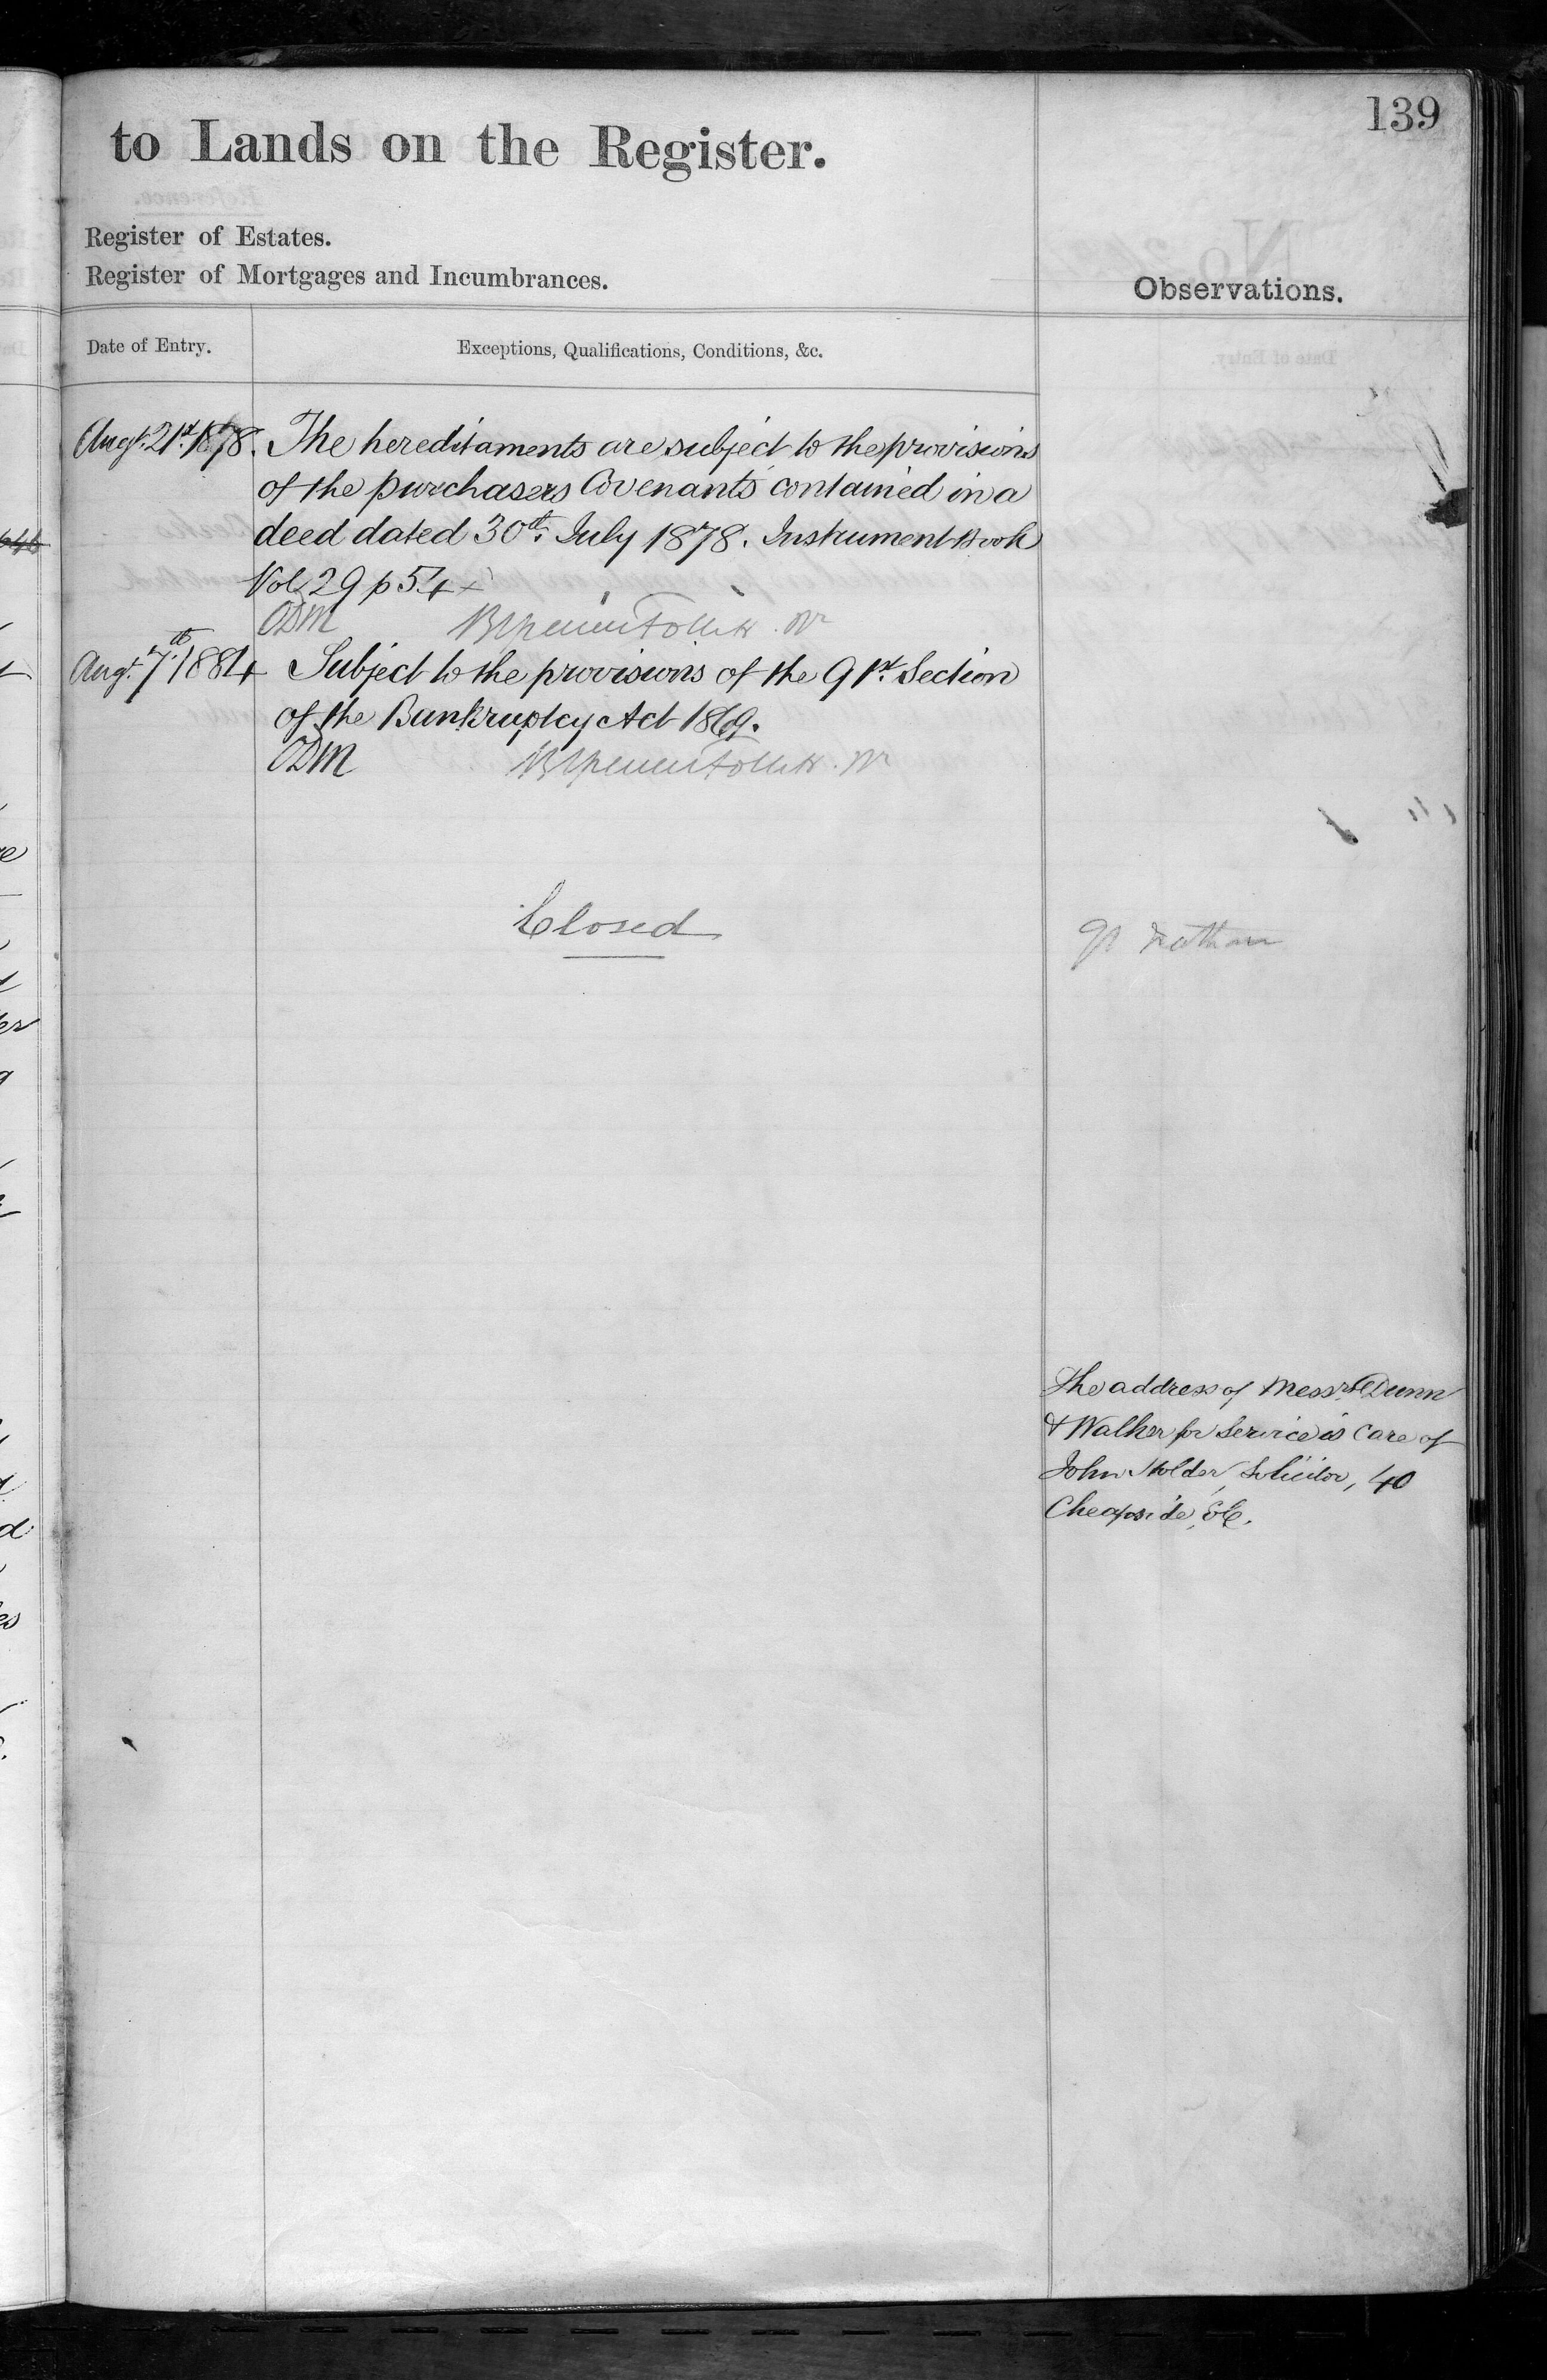 139
to Lands on the Register.
Register of Estates.
Register of Mortgages and Incumbrances.
Observations.
Date of Entry.
Exceptions, Qualifications, Conditions, &c.
Augt. 21st. 1878. The hereditaments are subject to the provisions
of the purchasers Covenants contained in a
deed dated 30th. July 1878. Instrument Book
Vol 29 p 54
ODM
Augt. 7th. 1884 Subject to the provisions of the 91st. Section
of the Bankruptcy Act 1869.
ODM
Closed
The address of Messrs. Dunn
& Walker for Service is Care of
John Holder, Solicitor, 40
Cheapside, EC.